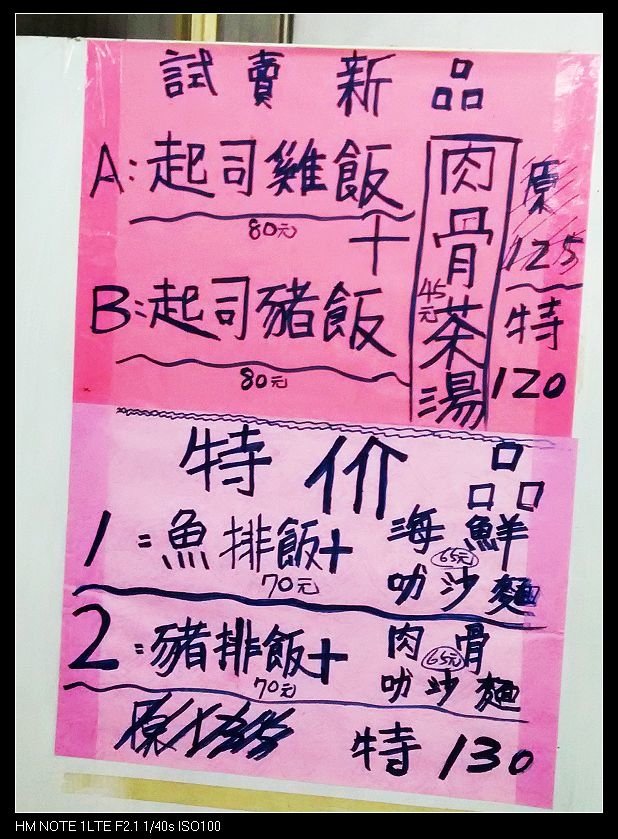 試賣新品
A:起司雞飯
80元
+
B:起司豬飯
80元
肉骨茶湯
45元
原
125
特
120
特价品
1:魚排飯+
70元
海鮮
65元
叻沙麵
2:豬排飯+
70元
肉骨
65元
叻沙麵
原
特130
HM NOTE 1LTE F2.1 1/40s ISO100